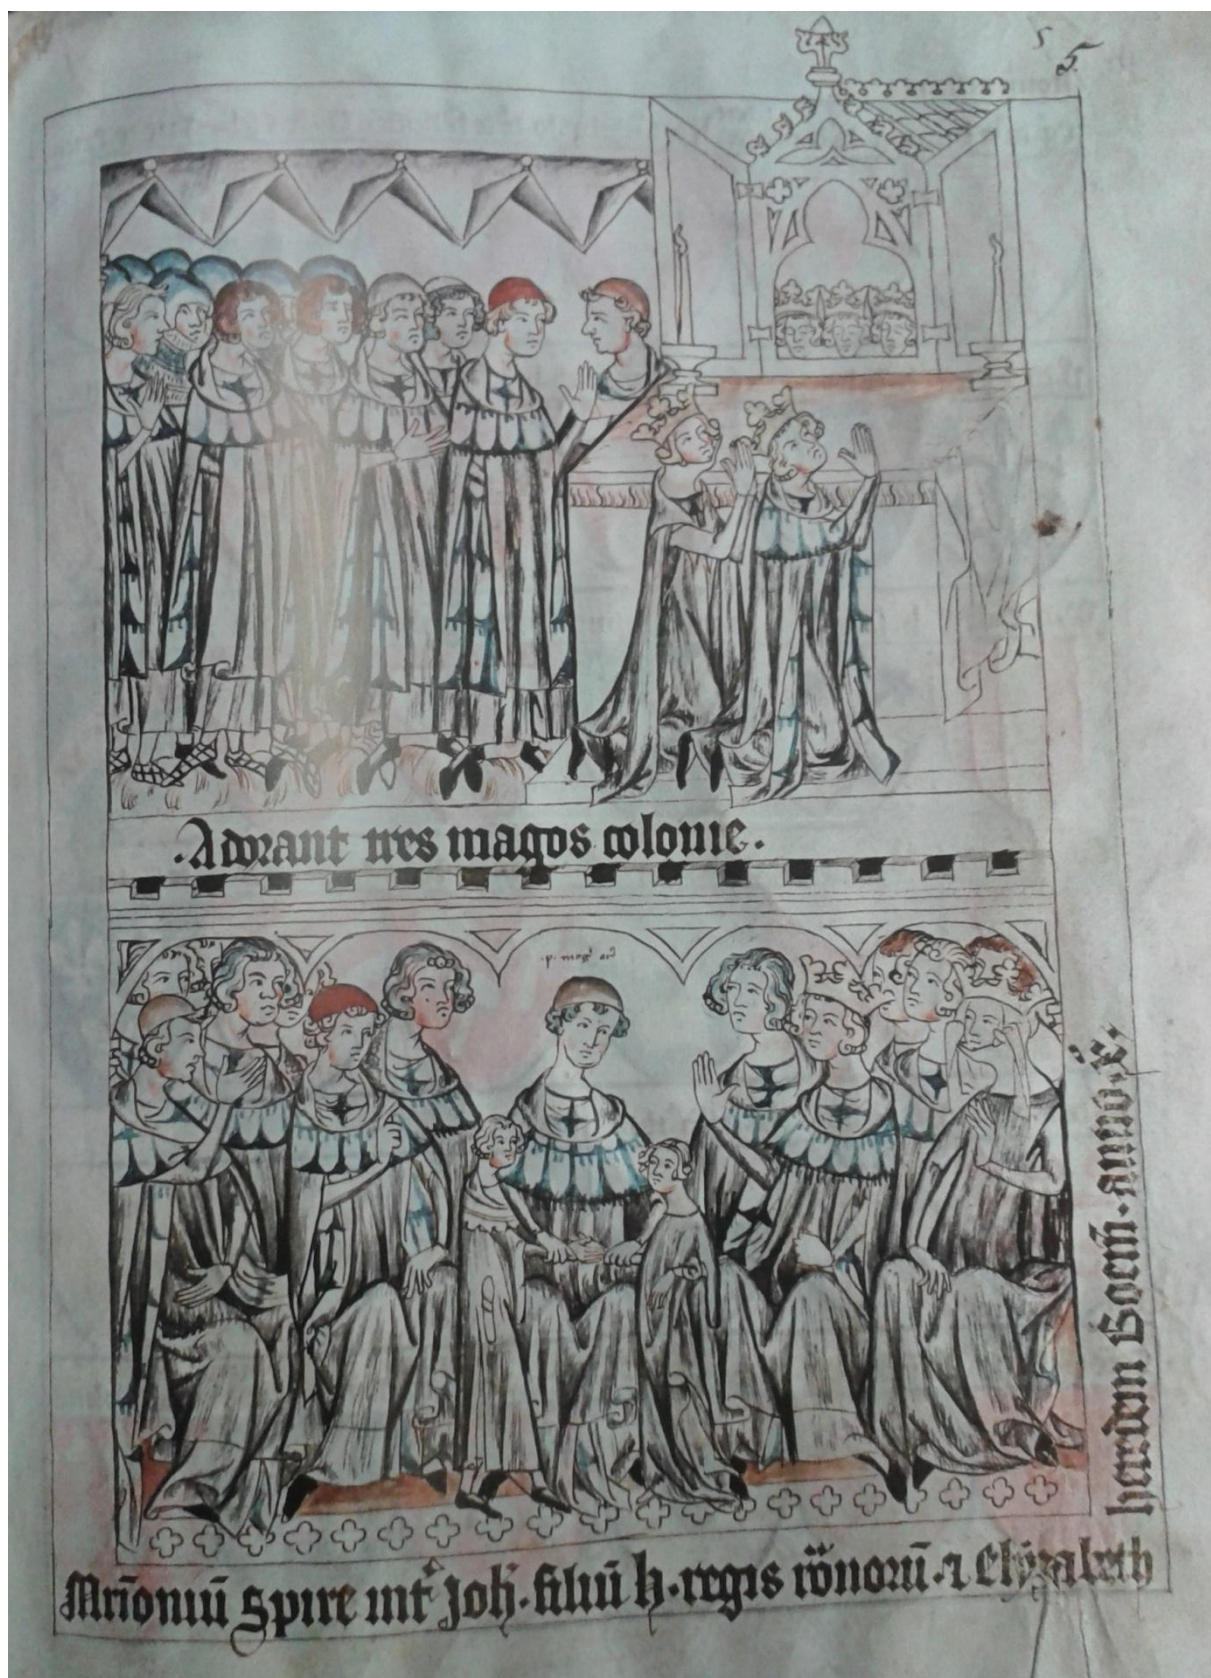 5
5.
.Adorant tres magos colonie.
.p. mogū
Mr̄ioniū Spire int̄ Joh̄. filiū h. regis rōnorū. ⁊ Elyzabeth
heredem Boem̄. anno. x̊.